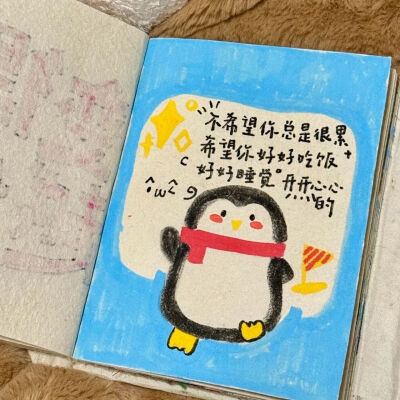 不希望你总是很累
希望你好好吃饭
好好睡觉 开开心心
的